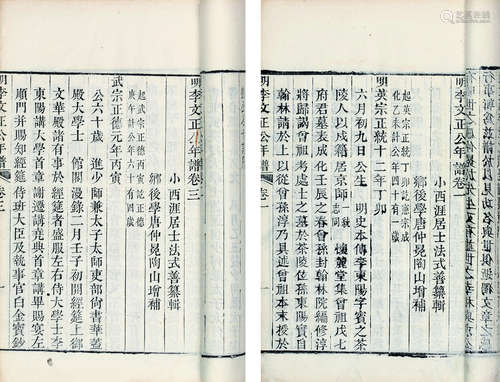 明李文正公年譜卷一
小西涯居士法式善纂輯
鄉後學唐仲冕陶山增補
起英宗正統丁卯訖憲宗成
化乙未計公年
明英宗正統十二年丁卯
六月初九日公生 明史本傳李東陽字賓之茶
陵人以戍籍居京師 志同 懷麓堂集曾祖戍七
府君墓表成化壬辰之春曾孫封翰林院編修淳
曾祖考處士之墓於茶陵 孫東陽實自
翰林請於上以從曾孫淳乃具述曾祖本末授於
明李文正公年譜 卷一 一
明李文正公年譜卷三
小西涯居士法式善纂輯
鄉後學唐仲冕陶山增補
起武宗正德丙寅訖正德
庚午計公年六十有四歲
武宗正德元年丙寅
公六十歲 進少師兼太子太師吏部尚書華蓋
殿大學士 館閣漫錄二月壬子初開經筵上御
文華殿諸有事於經筵者盛服左右侍大學士李
東陽講大學首章謝遷講堯典首章講畢賜宴左
順門并賜知經筵侍班大臣及執事官白金寶鈔
明李文正公年譜 卷三 一